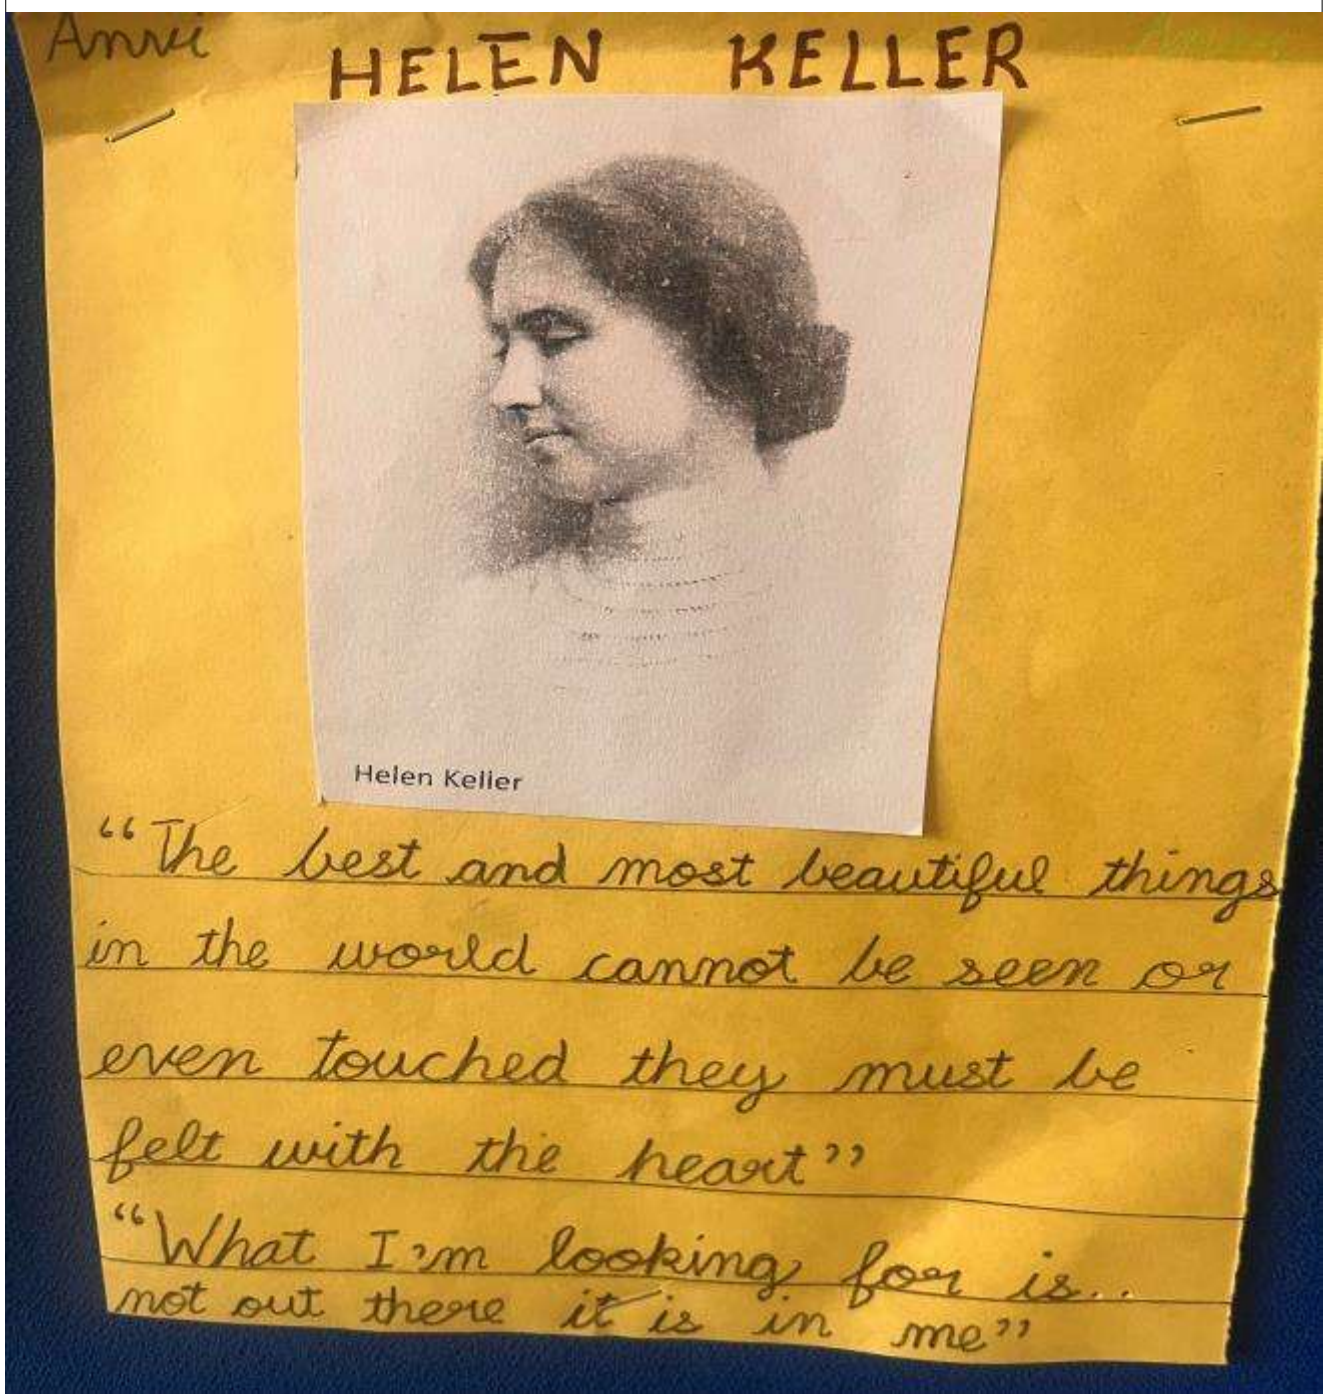 Anvi
HELEN KELLER
Helen Keller
“The best and most beautiful things
in the world cannot be seen or
even touched they must be
felt with the heart”
“What I'm looking for is..
not out there it is in me”